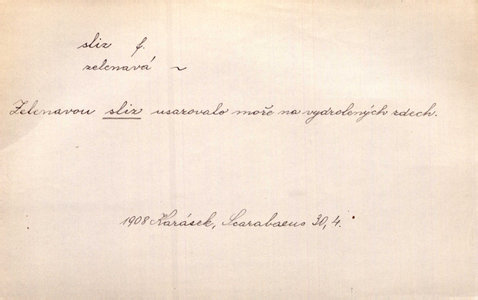 sliz f.
zelenavá ~
Zelenavou sliz usazovalo moře na vydrolených zdech.
1908 Karásek, Scarabaeus 30, 4.